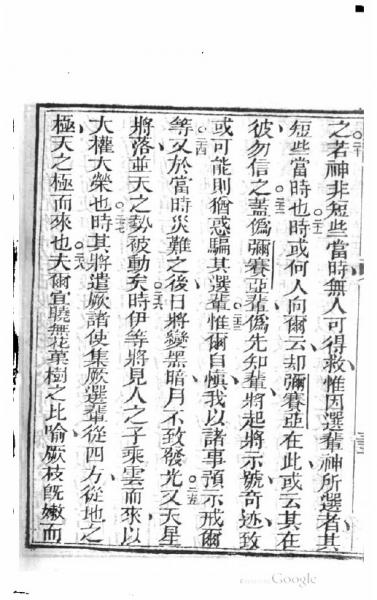 之若神非短些當時無人可得救惟因選輩神所選者其
短些當時也時或何人向爾云却彌賽亞在此或云其在
彼勿信之蓋僞彌賽亞輩僞先知輩將起將示號奇迹致
或可能則猶惑騙其選輩惟爾自愼我以諸事預示戒爾
等又於當時災難之後日將變黑暗月不致發光又天星
將落並天之勢被動矣時伊等將見人之子乘雲而來以
大權大榮也時其將遣厥諸使集厥選輩從四方從地之
極天之極而來也夫爾宜曉無花菓樹之比喻厥枝旣嫩而
Google